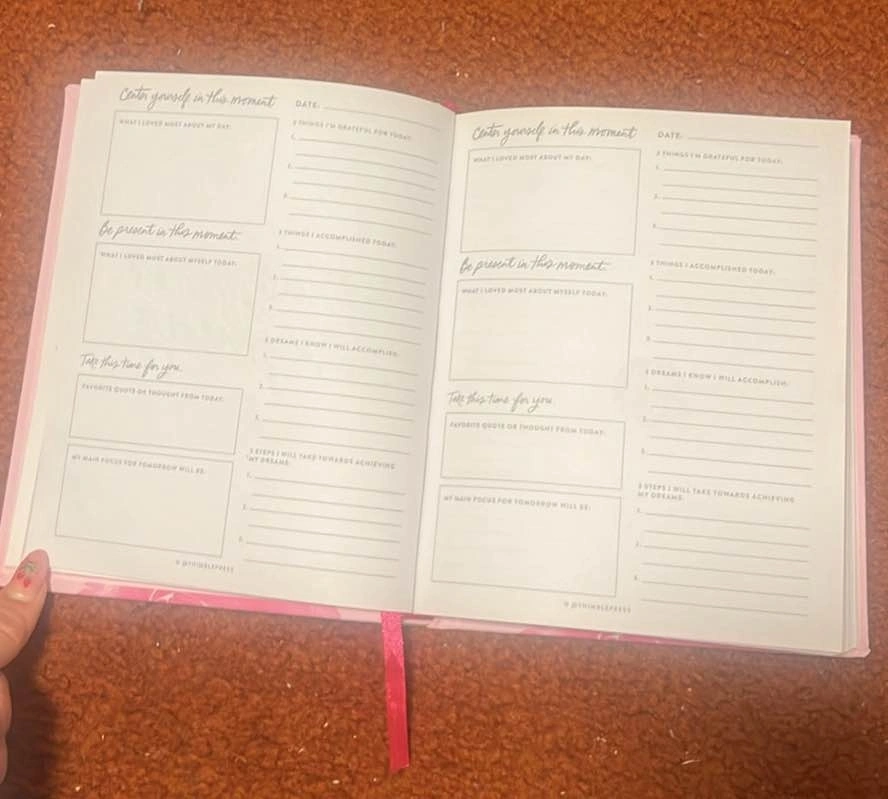 Center yourself in this moment
DATE:
WHAT I LOVED MOST ABOUT MY DAY:
3 THINGS I'M GRATEFUL FOR TODAY:
1.
2.
3.
Be present in this moment.
WHAT I LOVED MOST ABOUT MYSELF TODAY:
3 THINGS I ACCOMPLISHED TODAY:
1.
2.
3.
Take this time for you.
FAVORITE QUOTE OR THOUGHT FROM TODAY:
3 DREAMS I KNOW I WILL ACCOMPLISH:
1.
2.
3.
MY MAIN FOCUS FOR TOMORROW WILL BE:
3 STEPS I WILL TAKE TOWARDS ACHIEVING
MY DREAMS:
1.
2.
3.
© @THIMBLEPRESS
Center yourself in this moment
DATE:
WHAT I LOVED MOST ABOUT MY DAY:
3 THINGS I'M GRATEFUL FOR TODAY:
1.
2.
3.
Be present in this moment.
WHAT I LOVED MOST ABOUT MYSELF TODAY:
3 THINGS I ACCOMPLISHED TODAY:
1.
2.
3.
Take this time for you.
FAVORITE QUOTE OR THOUGHT FROM TODAY:
3 DREAMS I KNOW I WILL ACCOMPLISH:
1.
2.
3.
MY MAIN FOCUS FOR TOMORROW WILL BE:
3 STEPS I WILL TAKE TOWARDS ACHIEVING
MY DREAMS:
1.
2.
3.
© @THIMBLEPRESS